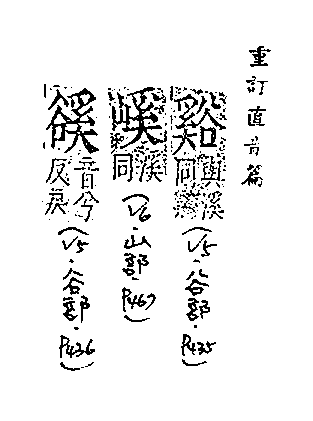 重訂直音篇
谿與溪同(V5.谷部.P435)
嵠溪同(V6.山部.P467)
音兮反戾(V5.谷部.P436)